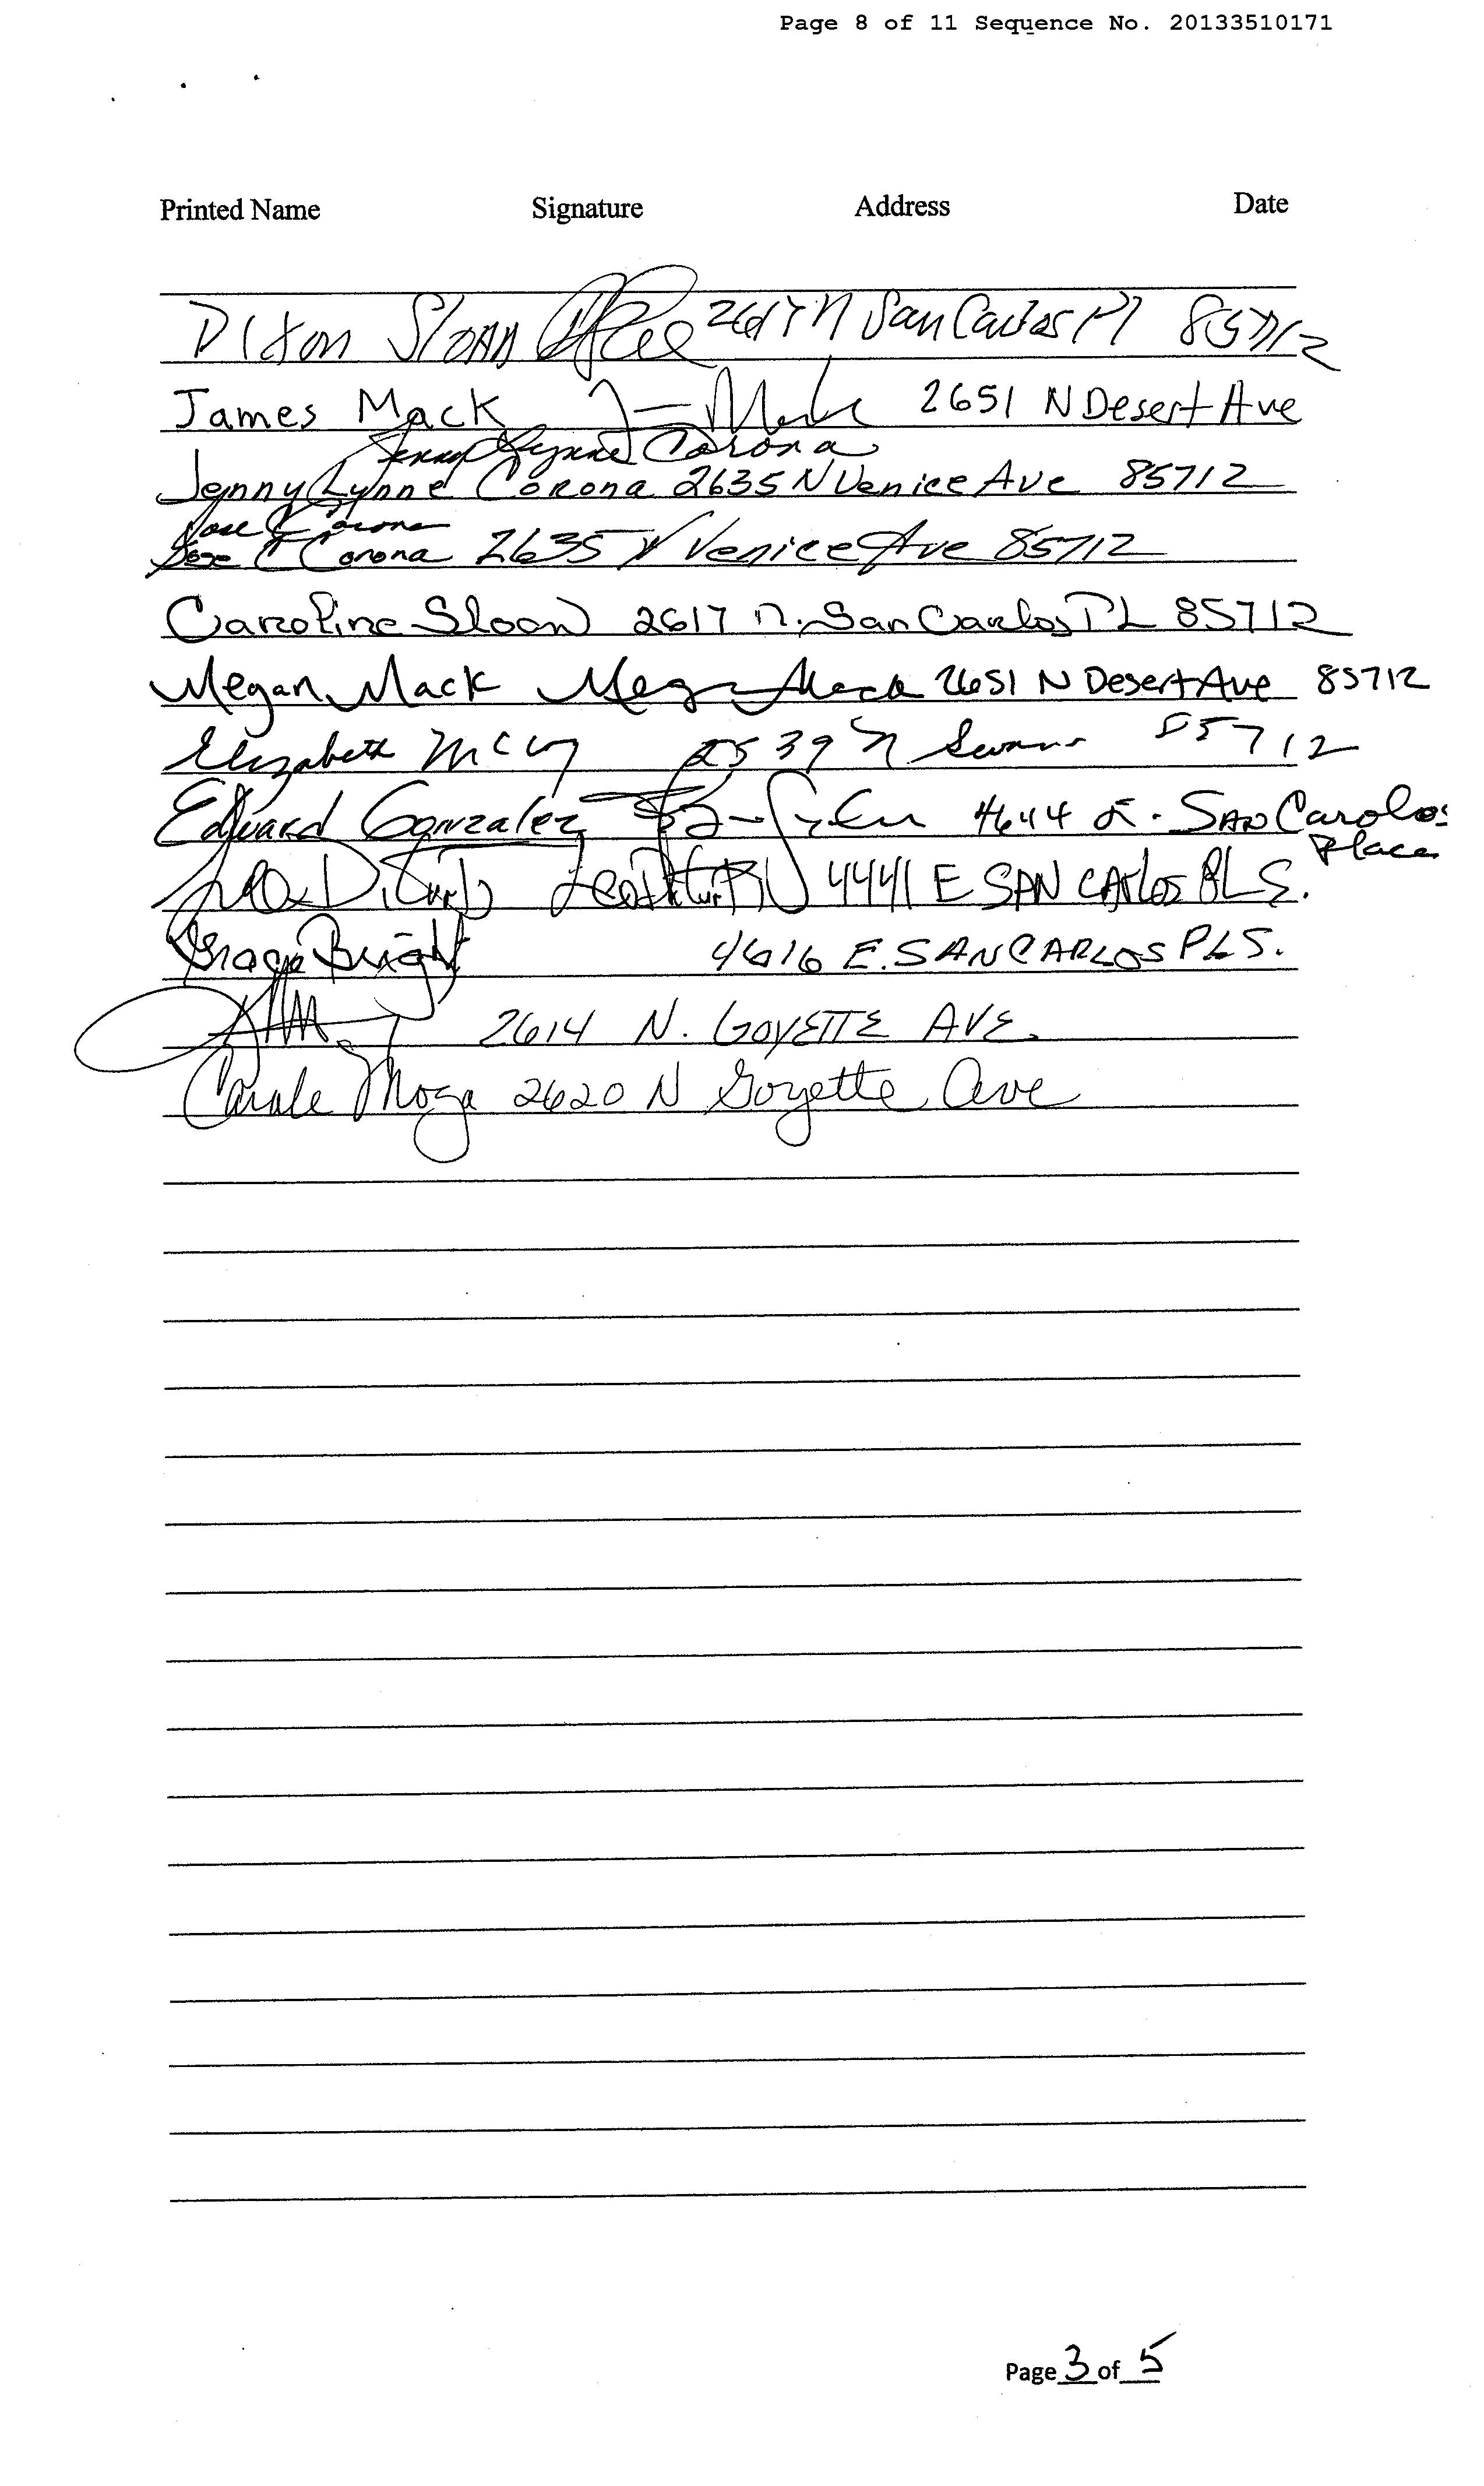 Page 8 of 11 Sequence No. 20133510171
Printed Name Signature Address Date
Dixon Sloan 2617 N San Carlos Pl 85712
James Mack 2651 N Desert Ave
Jenny Lynne Corona
Jenny Lynne Corona 2635 N Venice Ave 85712
Jose C Corona
Jose C Corona 2635 N Venice Ave 85712
Caroline Sloan 2617 n. San Carlos PL 85712
Megan Mack Megan Mack 2651 N Desert Ave 85712
Elizabeth 2539 N 85712
Edward Gonzalez 4644 E. SAN Carolos
Place
4441 E SAN CARlos PL S.
Bright 4616 E. SAN CARLOS PL S.
2614 N. GOYETTE AVE.
Carole 2620 N Goyette Ave
Page 3 of 5